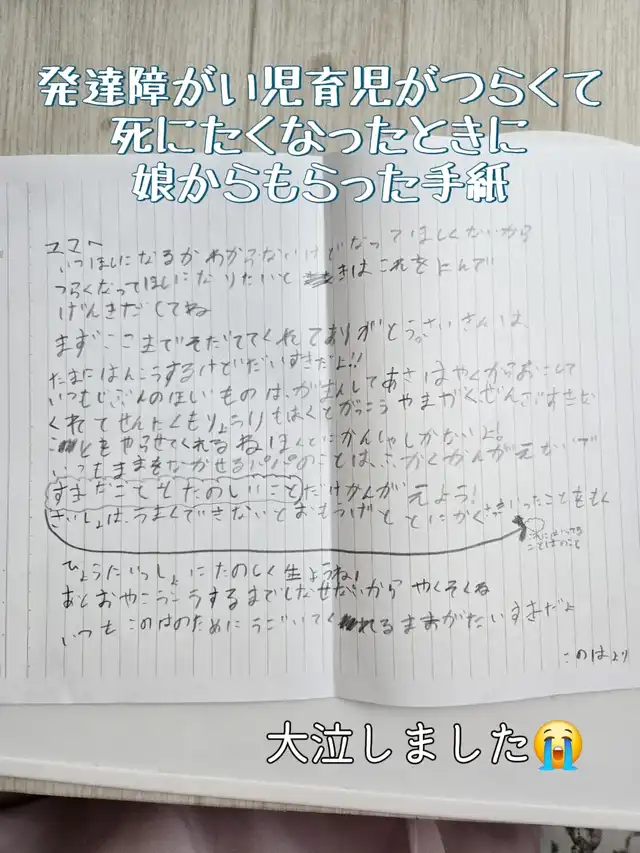 発達障がい児育児がつらくて
死にたくなったときに
娘からもらった手紙
ママへ
いつほしになるかわからないけどなってほしくないから
つらくなってほしになりたいと きはこれをよんで
げんきだしてね
まずここまでそだててくれてありがとう。さいきんは、
たまにはんこうするけどだいすきだよ!!
いつもじぶんのほしいものは、がまんしてあさはやくからおこして
くれてせんたくもりょうりもはくとがっこうやまがくぜんぶすきな
こともやらせてくれるねほんとにかんしゃしかないよ!
いつもままをなかせるパパのことは、ふかくかんがえないで
すきなこととたのしいことだけかんがえよう!
さいしょは、うまくできないとおもうけど とにかく いったことをもく
ひょうにいっしょにたのしく生ようね!
おやこうこうするまでしなせないから やくそくね
いつもこのはのためにうごいてくれるままがだいすきだよ
このはより
大泣しました😭